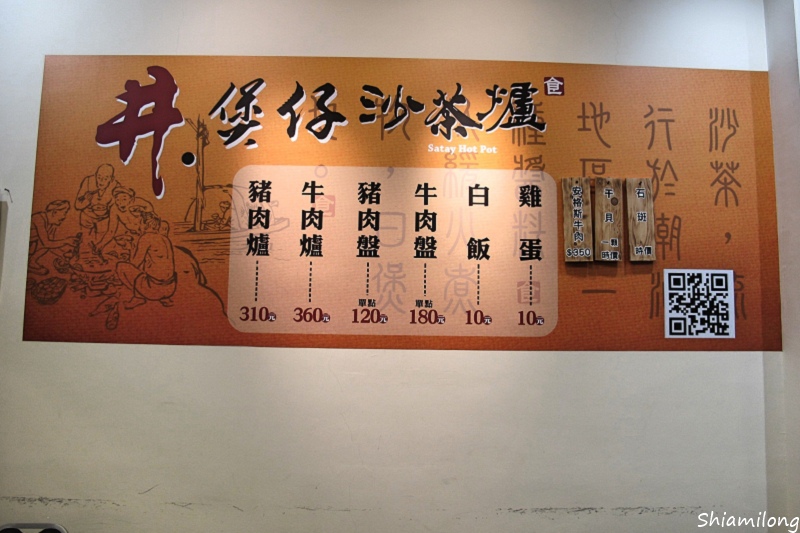 井.煲仔沙茶爐
食
Satay Hot Pot
豬肉爐 310元
牛肉爐 360元
豬肉盤 單點 120元
牛肉盤 單點 180元
白飯 10元
雞蛋 10元
安格斯牛肉 $360
干貝 一顆 時價
石斑 時價
沙茶，
行於潮
地區
醬料
Shiamilong